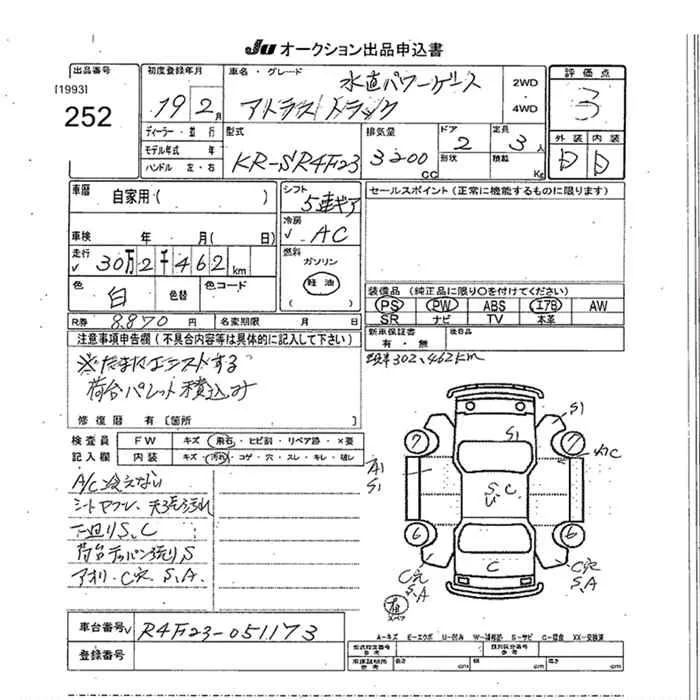 JU オークション出品申込書
出品番号
[1993]
252
初度登録年月
19 2月
車名・グレード
水直パワーゲース
アトラストラック
2WD
4WD
評価点
3
外装 内装
D D
ディーラー・並行
モデル年式 年
ハンドル 左・右
型式
KR-SR4F23
排気量
3200 CC
ドア
2
形状
定員
3人
積載
Kg
車暦
自家用・( )
車検 年 月(日)
走行
30万2千462 km
色
白
色替
色コード
シフト
5速ギア
冷房
AC
燃料
ガソリン
軽油
( )
セールスポイント(正常に機能するものに限ります)
装備品(純正品に限り○を付けてください)
PS PW ABS エアB AW
SR ナビ TV 本革
新車保証書
有・無
後日品
R券 8,870円
名変期限 月 日
注意事項申告欄(不具合内容等は具体的に記入して下さい)
※たまにエンストする
荷台パレット積込み
修復歴 有〔箇所 〕
302,462km
検査員
記入欄
FW キズ・飛石・ヒビ割・リペア跡・×要
内装 キズ・汚れ・コゲ・穴・スレ・キレ・破レ
A/C冷えない
シートヤブレ、天張汚れ
下廻りS、C
荷台テッパン張りS
アオリ・C穴、S、A.
S1
7
7
S1
A1
S1
S、C
U
6
6
C
C穴
S、A
C穴
S、A
スペア
A-キズ E-エクボ U-凹み W-補修跡 S-サビ C-腐食 XX-交換済
車台番号
R4F23-051173
登録番号
型式指定番号
参考
類別区分番号
参考
車庫証明用
参考
長さ cm
幅 cm
高さ cm